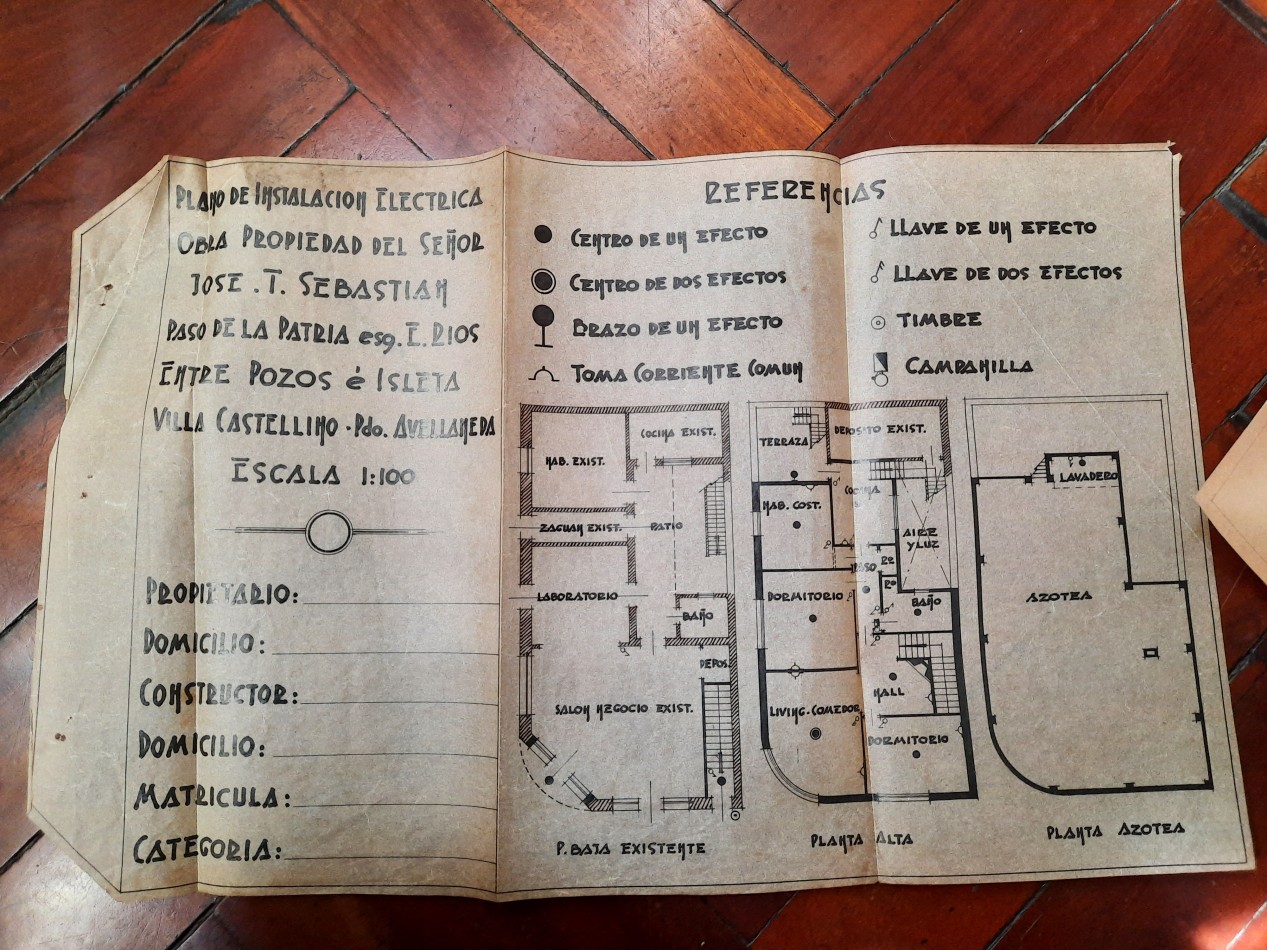 PLANO DE INSTALACION ELECTRICA
OBRA PROPIEDAD DEL SEÑOR
JOSE . T. SEBASTIAN
PASO DE LA PATRIA esq. E. RIOS
ENTRE POZOS é ISLETA
VILLA CASTELLINO · Pdo. AVELLANEDA
ESCALA 1:100
PROPIETARIO:
DOMICILIO:
CONSTRUCTOR:
DOMICILIO:
MATRICULA:
CATEGORIA:
REFERENCIAS
CENTRO DE UN EFECTO
CENTRO DE DOS EFECTOS
BRAZO DE UN EFECTO
TOMA CORRIENTE COMUN
LLAVE DE UN EFECTO
LLAVE DE DOS EFECTOS
TIMBRE
CAMPANILLA
COCINA EXIST.
HAB. EXIST.
ZAGUAN EXIST.
PATIO
LABORATORIO
BAÑO
DEPOS.
SALON NEGOCIO EXIST.
P. BAJA EXISTENTE
TERRAZA
DEPOSITO EXIST.
COCINA
HAB. COST.
AIRE
Y LUZ
PASO
Rº
Rº
DORMITORIO
BAÑO
HALL
LIVING-COMEDOR
DORMITORIO
PLANTA ALTA
LAVADERO
AZOTEA
PLANTA AZOTEA